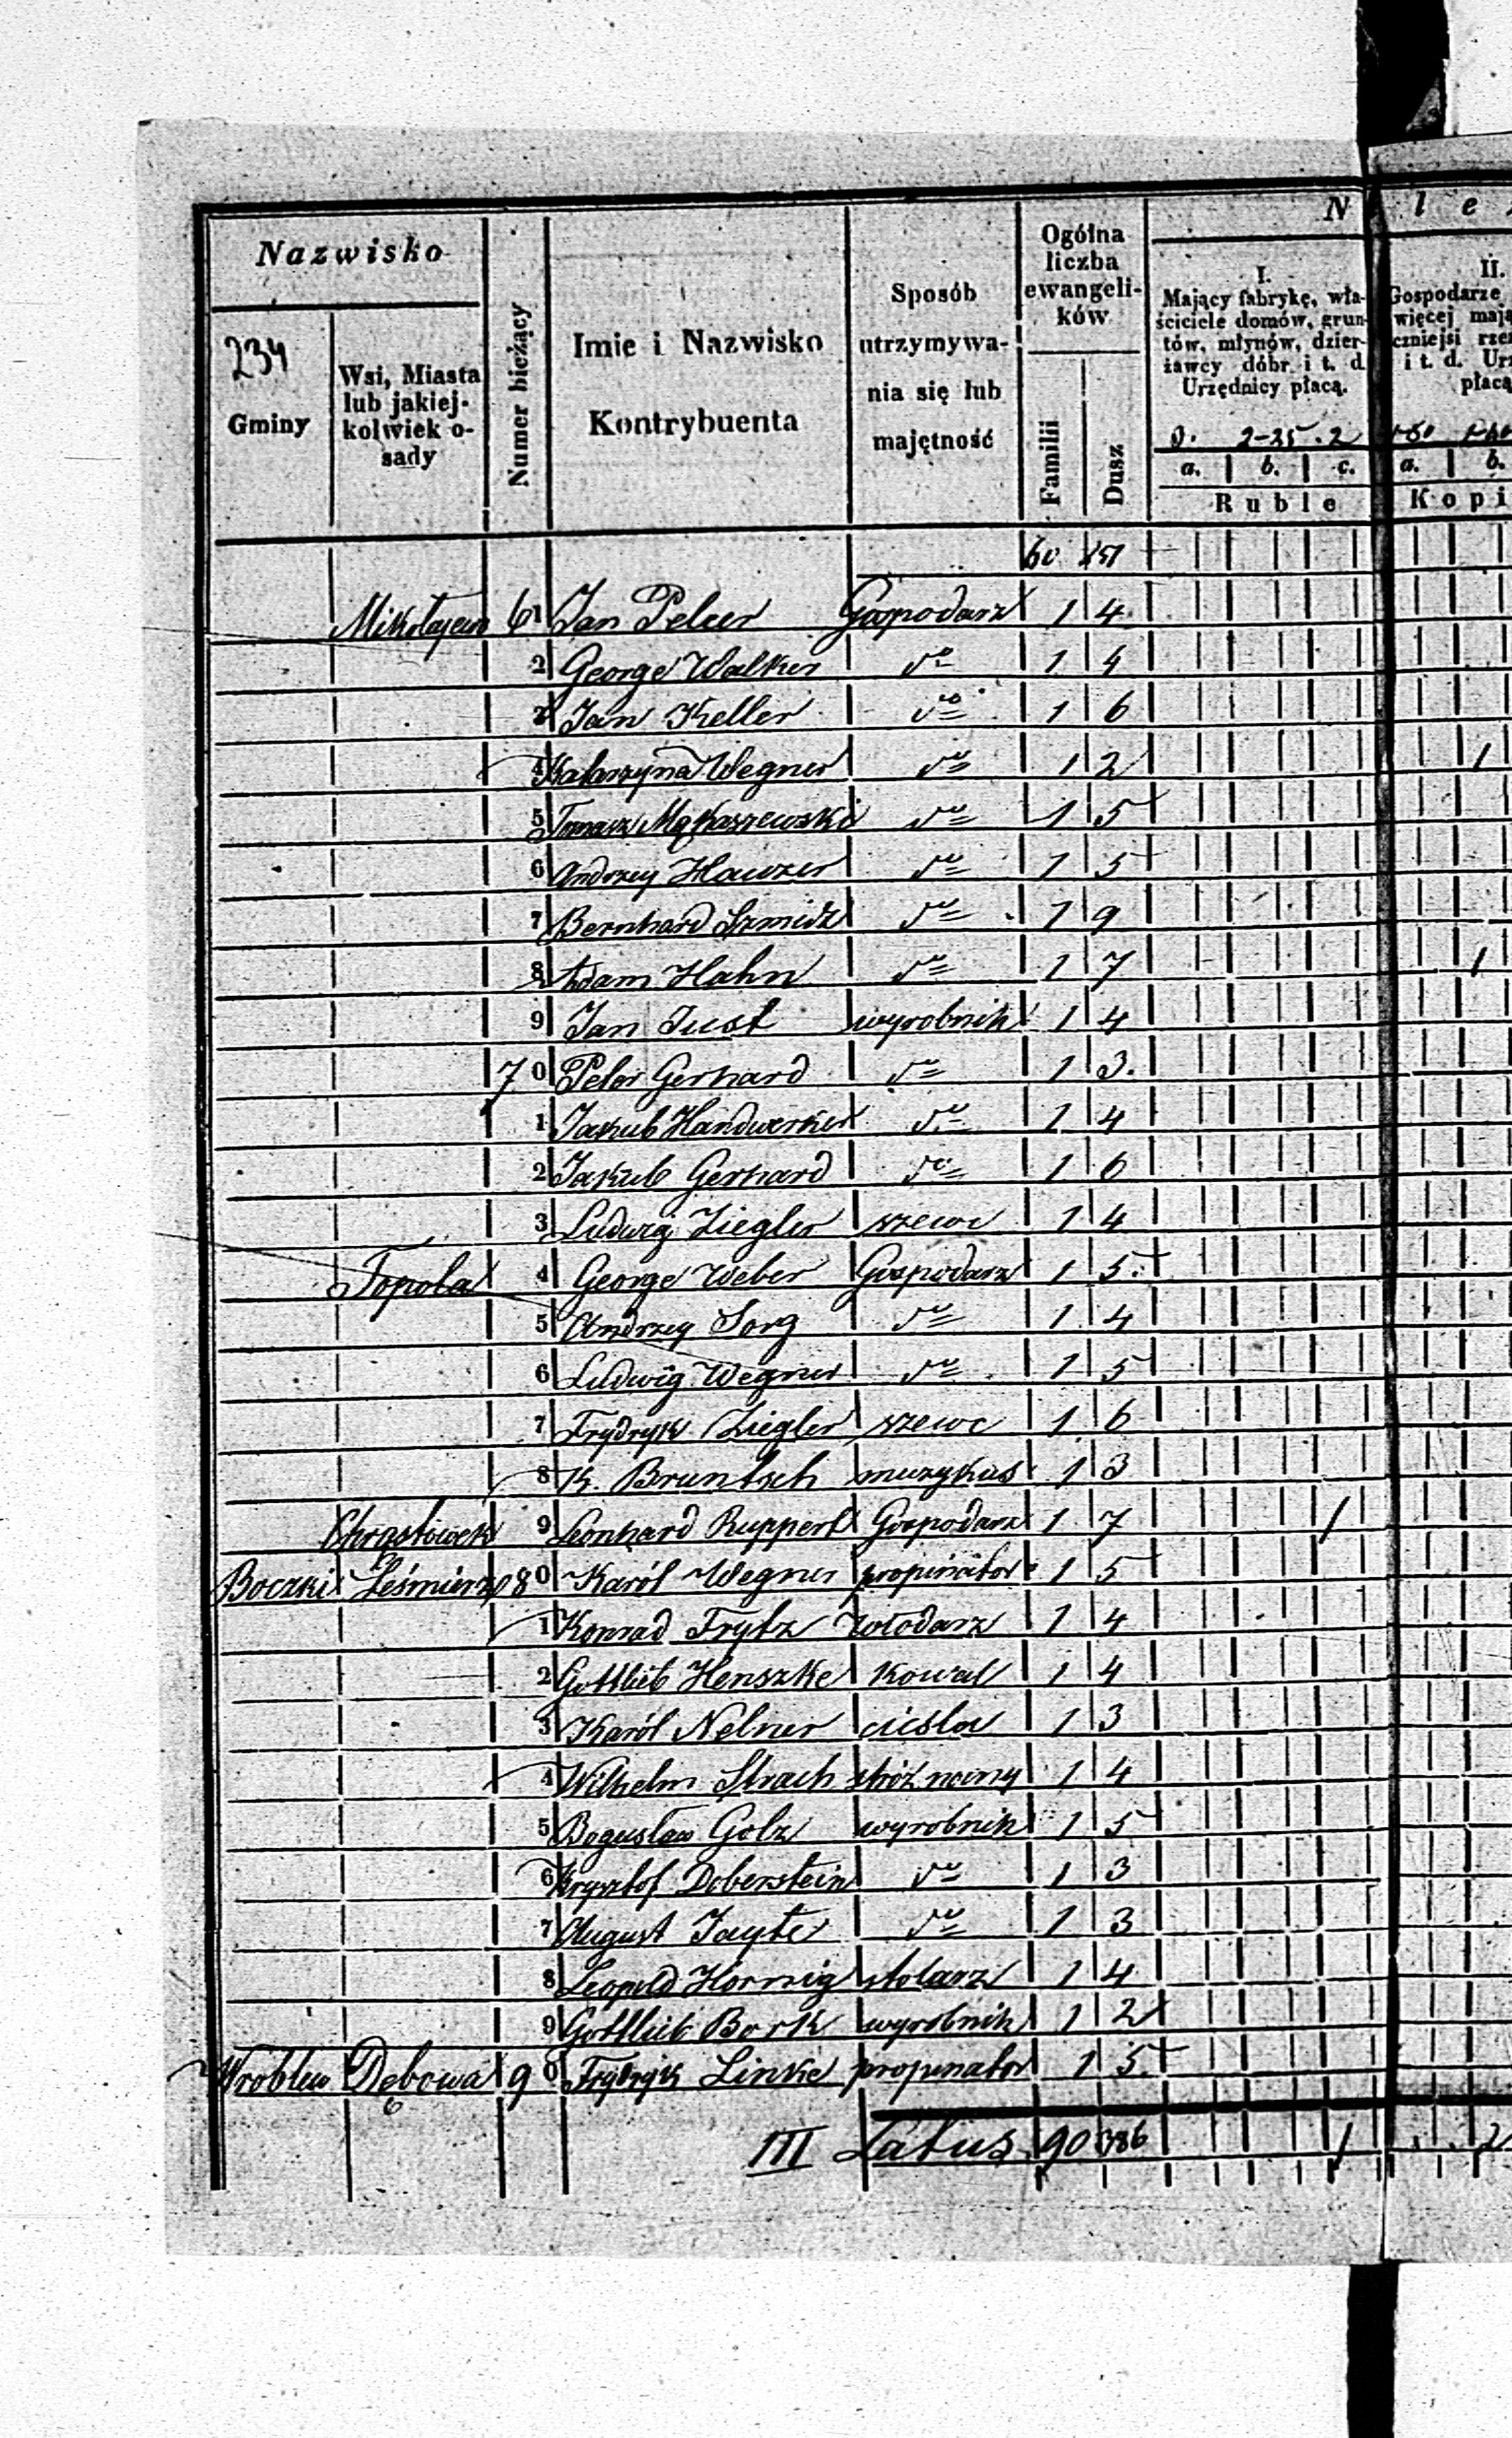 Nazwisko
234
Gminy
Wsi, Miasta
lub jakiej-
kolwiek o-
sady
Numer bieżący
Imie i Nazwisko
Kontrybuenta
Sposób
utrzymywa-
nia się lub
majętność
Ogólna
liczba
ewangeli-
ków
Familii
Dusz
N l e
I.
Mający fabrykę, wła-
ściciele domów, grun-
tów, młynów, dzier-
żawcy dóbr i t. d.
Urzędnicy płacą.
3. 2-25 . 2
a. b. c.
Ruble
II.
Gospodarze
więcej mają
czniejsi rze
i t. d. Urz
płacą
a. b.
Kopi
60
Mikołajew 61 Jan Pelzer Gospodarz 1 4
2 George Walker do 1 4
3 Jan Keller do 1 6
4 Katarzyna Wegner do 1 2 1
5 Tomasz Mąkaszewski do 1 5
6 Andrzey Hauzer do 1 5
7 Bernhard Szmidt do 1 9
8 Adam Hahn do 1 7 1
9 Jan Just wyrobnik 1 4
70 Peter Gerhard do 1 3.
1 Jakub Handwerker do 1 4
2 Jakub Gerhard do 1 6
3 Ludwig Ziegler szewc 1 4
Topola 4 George Weber Gospodarz 1 5.
5 Andrzey Sorg do 1 4
6 Ludwig Wegner do 1 5
7 Frydryk Ziegler szewc 1 6
8 K. Bruntsch muzykus 1 3
Chrząstówek 9 Leonhard Ruppert Gospodarz 1 7 1
Boczki Leśmierz 80 Karól Wegner propinator 1 5
1 Konrad Frytz włodarz 1 4
2 Gottlieb Henszke Kowal 1 4
3 Karól Nelner cieśla 1 3
4 Wilhelm Strach stróż nocny 1 4
5 Bogusław Golz wyrobnik 1 5
6 Krysztof Doberstein do 1 3
7 August Jayte do 1 3
8 Leopold Hornig stolarz 1 4
9 Gottlieb Bork wyrobnik 1 2
Wroblew Dębowa 90 Frydryk Linke propinator 1 5.
III Latus 90 386 1 2